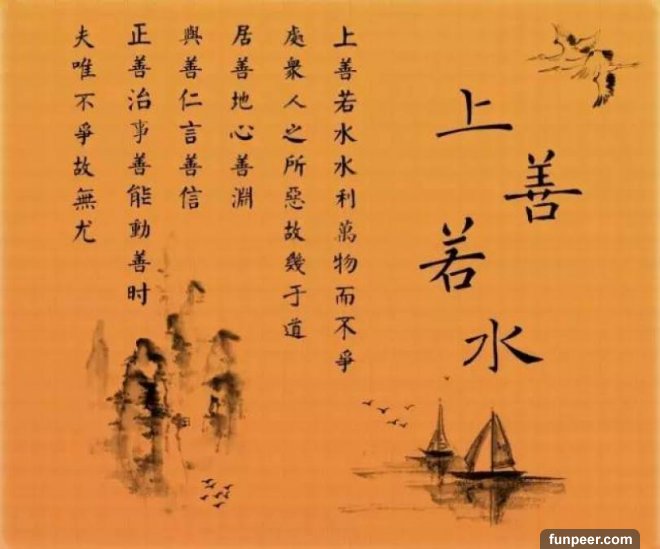 上善若水
上善若水水利萬物而不爭
處衆人之所惡故幾于道
居善地心善淵
與善仁言善信
正善治事善能動善时
夫唯不爭故無尤
funpeer.com